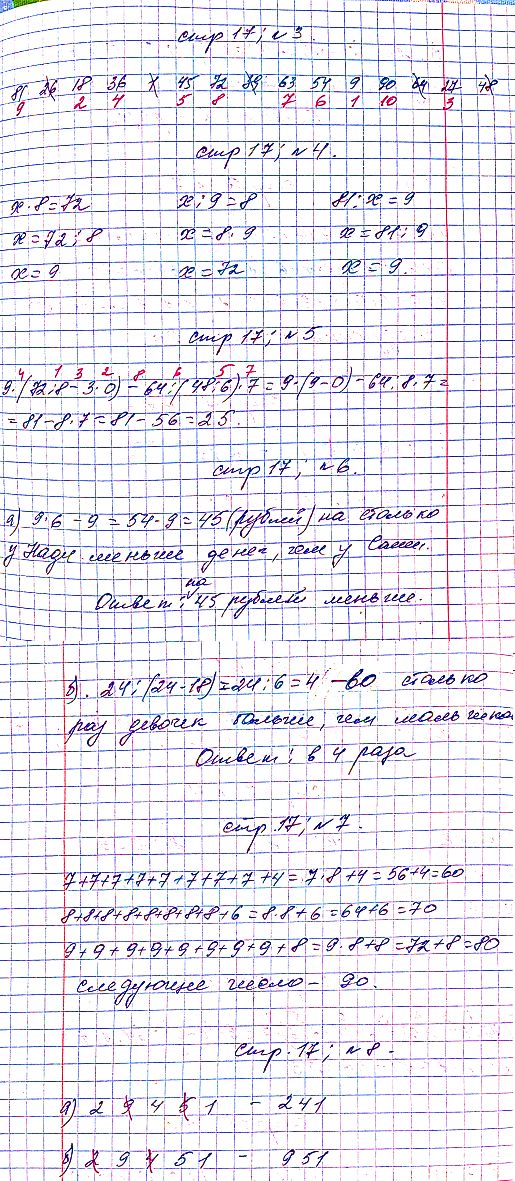 стр 17; №3.
81 26 18 36 1 45 72 39 63 54 9 90 64 27 48
9 2 4 5 8 7 6 1 10 3
стр 17; №4.
x·8=72 x:9=8 81:x=9
x=72:8 x=8·9 x=81:9
x=9 x=72 x=9.
стр 17; №5
4 1 3 2 8 6 5 7
9·(72:8-3·0)-64:(48:6)·7=9·(9-0)-64:8·7=
=81-8·7=81-56=25.
стр 17; №6.
а) 9·6-9=54-9=45(рублей) на столько
у Нади меньше денег, чем у Саши.
на
Ответ: 45 рублей меньше.
б). 24:(24-18)=24:6=4 -во столько
раз девочек больше, чем мальчиков
Ответ: в 4 раза
стр. 17; №7.
7+7+7+7+7+7+7+7+4=7·8+4=56+4=60
8+8+8+8+8+8+8+8+6=8·8+6=64+6=70
9+9+9+9+9+9+9+9+8=9·8+8=72+8=80
следующее число - 90.
стр. 17; №8.
а) 2 9 4 5 1 - 241
б) 2 9 4 5 1 - 951